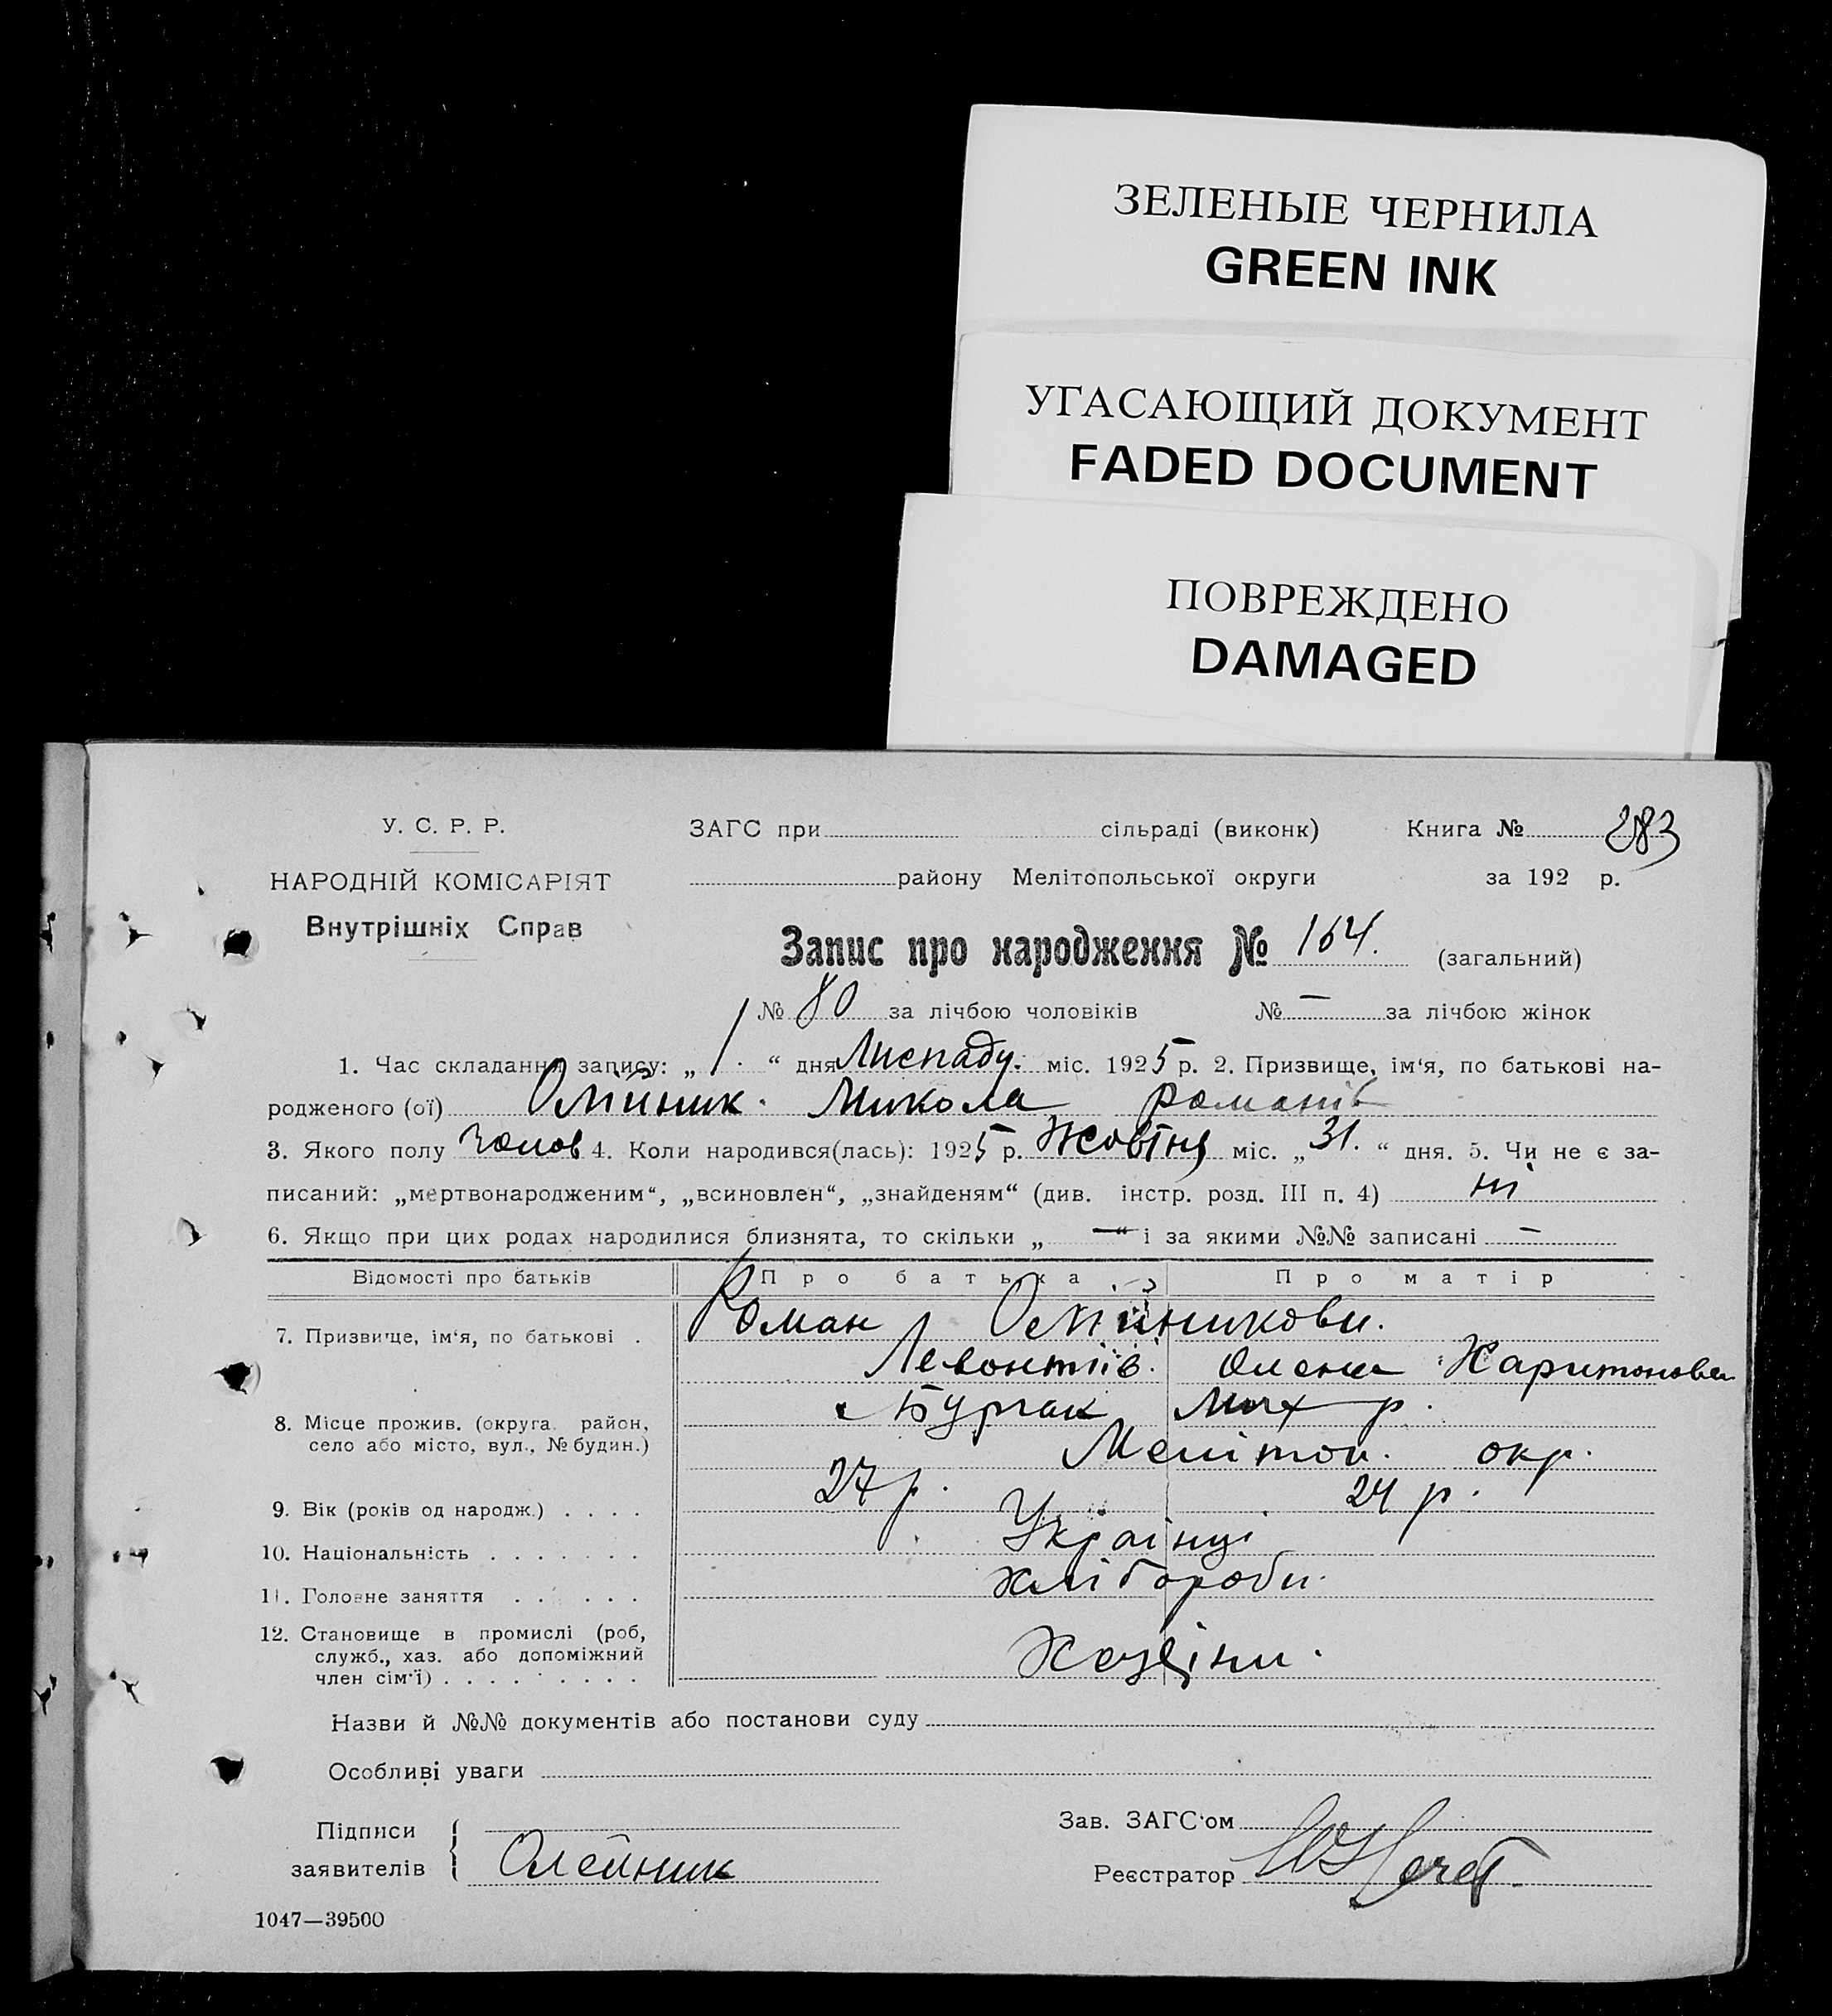 ЗЕЛЕНЫЕ ЧЕРНИЛА
GREEN INK
УГАСАЮЩИЙ ДОКУМЕНТ
FADED DOCUMENT
ПОВРЕЖДЕНО
DAMAGED
У. С. Р. Р.
НАРОДНІЙ КОМІСАРІЯТ
Внутрішніх Справ
ЗАГС при сільраді (виконк) Книга № 283
району Мелітопольської округи за 192 р.
Запис про народження № 164. (загальний)
№ 80 за лічбою чоловіків № — за лічбою жінок
1. Час складання запису: „ 1 “ дня Лиспаду. міс. 1925 р. 2. Призвище, ім‘я, по батькові на-
родженого (ої) Олійник. Микола Романів
3. Якого полу чолов 4. Коли народився(лась): 1925 р. Жовтня міс. „ 31. “ дня. 5. Чи не є за-
писаний: „мертвонародженим“, „всиновлен“, „знайденям“ (див. інстр. розд. III п. 4) ні
6. Якщо при цих родах народилися близнята, то скільки „ — “ і за якими №№ записані —
Відомості про батьків Про батька Про матір
7. Призвище, ім‘я, по батькові . Роман Олійникови.
Левонтіїв. Олена Харитонова
8. Місце прожив. (округа район, село або місто, вул., № будин.) Бурчак Мих р.
Мелітоп. окр.
9. Вік (років од народж.) . . . . 27 р. 24 р.
10. Національність . . . . . . . Українці
11. Головне заняття . . . . . . Хлібороби.
12. Становище в промислі (роб, служб., хаз. або допоміжний член сім‘ї) . . . . . . . . . Хазяіни.
Назви й №№ документів або постанови суду
Особливі уваги
Підписи
заявителів Олейник
Зав. ЗАГС‘ом
Реєстратор
1047—39500